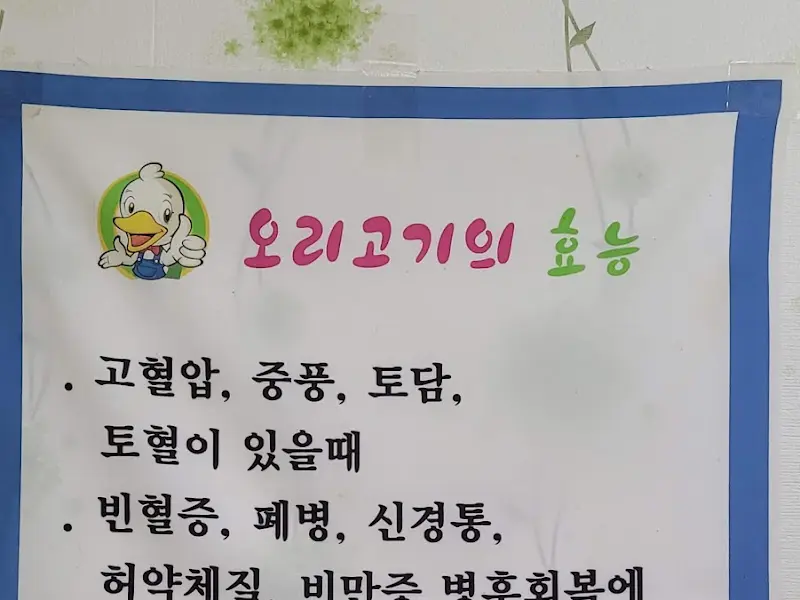 오리고기의 효능
. 고혈압, 중풍, 토담,
토혈이 있을때
. 빈혈증, 폐병, 신경통,
허약체질, 비만증 병후회복에